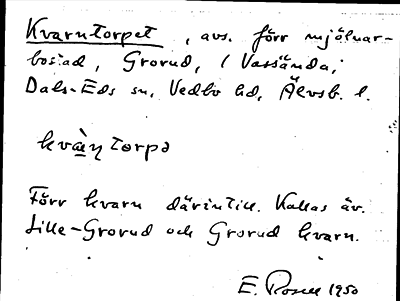 Kvarntorpet, avs. förr mjölnar-
bostad, Grorud, (Vassända,
Dals-Eds sn, Vedbo hd, Älvsb. l.
kvàɳtorpə
Förr kvarn därintill. Kallas äv.
Lille-Grorud och Grorud kvarn.
E. Rosell 1950